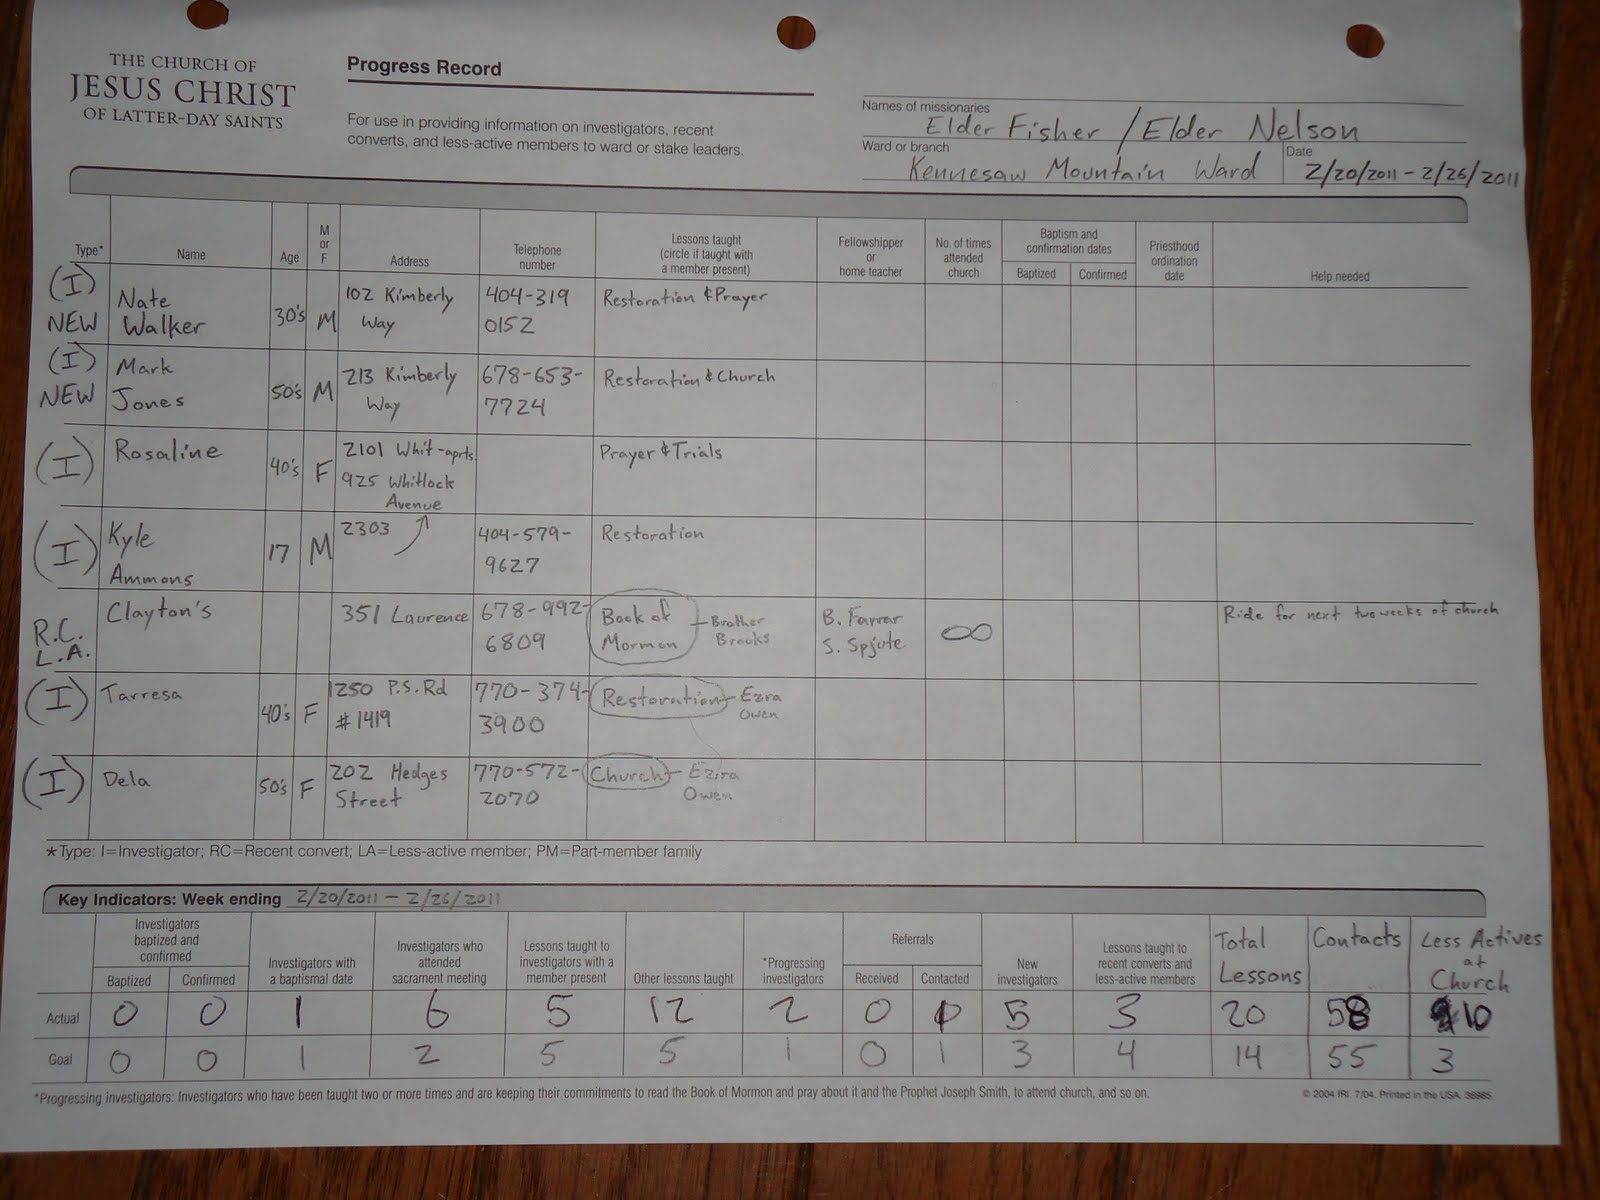 THE CHURCH OF
JESUS CHRIST
OF LATTER-DAY SAINTS
Progress Record
For use in providing information on investigators, recent
converts, and less-active members to ward or stake leaders.
Names of missionaries
Elder Fisher / Elder Nelson
Ward or branch
Kennesaw Mountain Ward
Date
2/20/2011 - 2/26/2011
Type*
Name
Age
M
or
F
Address
Telephone
number
Lessons taught
(circle if taught with
a member present)
Fellowshipper
or
home teacher
No. of times
attended
church
Baptism and
confirmation dates
Baptized
Confirmed
Priesthood
ordination
date
Help needed
(I)
NEW
Nate
Walker
30's
M
102 Kimberly
Way
404-319
0152
Restoration & Prayer
(I)
NEW
Mark
Jones
50's
M
213 Kimberly
Way
678-653-
7724
Restoration & Church
(I)
Rosaline
40's
F
2101 Whit-aprts.
925 Whitlock
Avenue
Prayer & Trials
(I)
Kyle
Ammons
17
M
2303
404-579-
9627
Restoration
R.C.
L.A.
Clayton's
351 Laurence
678-992-
6809
Book of
Mormon
- Brother
Brooks
B. Farrar
S. Spjute
∞
Ride for next two weeks of church
(I)
Tarresa
40's
F
1250 P.S. Rd
#1419
770-374-
3900
Restoration - Ezra
Owen
(I)
Dela
50's
F
202 Hedges
Street
770-572-
2070
Church - Ezira
Owen
*Type: I=Investigator; RC=Recent convert; LA=Less-active member; PM=Part-member family
Key Indicators: Week ending 2/20/2011 - 2/26/2011
Investigators
baptized and
confirmed
Baptized
Confirmed
Investigators with
a baptismal date
Investigators who
attended
sacrament meeting
Lessons taught to
investigators with a
member present
Other lessons taught
*Progressing
investigators
Referrals
Received
Contacted
New
investigators
Lessons taught to
recent converts and
less-active members
Total
Lessons
Contacts
Less Actives
at
Church
Actual 0 0 1 6 5 12 2 0 5 3 20 58 10
Goal 0 0 1 2 5 5 1 0 1 3 4 14 55 3
*Progressing investigators: Investigators who have been taught two or more times and are keeping their commitments to read the Book of Mormon and pray about it and the Prophet Joseph Smith, to attend church, and so on.
© 2004 IRI. 7/04. Printed in the USA. 36985